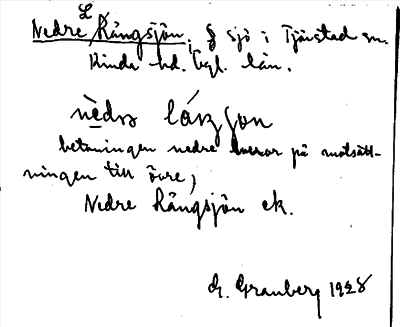 L
Nedre Kångsjön, § sjö i Tjärstad sn.
Kinda hd. Ögl. län.
nèdrə låŋʒʃøn
betoningen nedre beror på motsätt-
ningen till övre,
Nedre Långsjön ek.
G. Granberg 1928